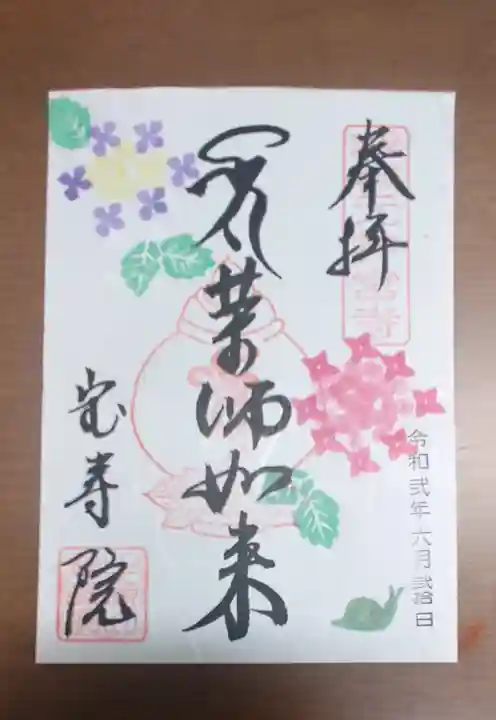 奉拝
薬師如来
宝寿院
令和弐年六月弐拾日